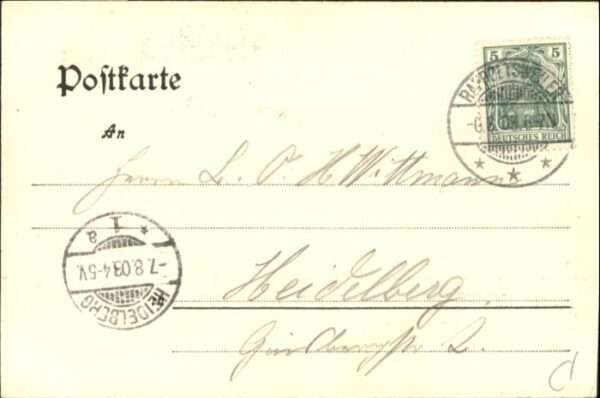 Postkarte
5 5
RAPPOLTSWEILER
-6.8.03. 6-7N.
DEUTSCHES REICH
An
Herrn L. O. H. Wittmann
* 1 a
-7.8.03.4-5V.
HEIDELBERG
Heidelberg,
2.